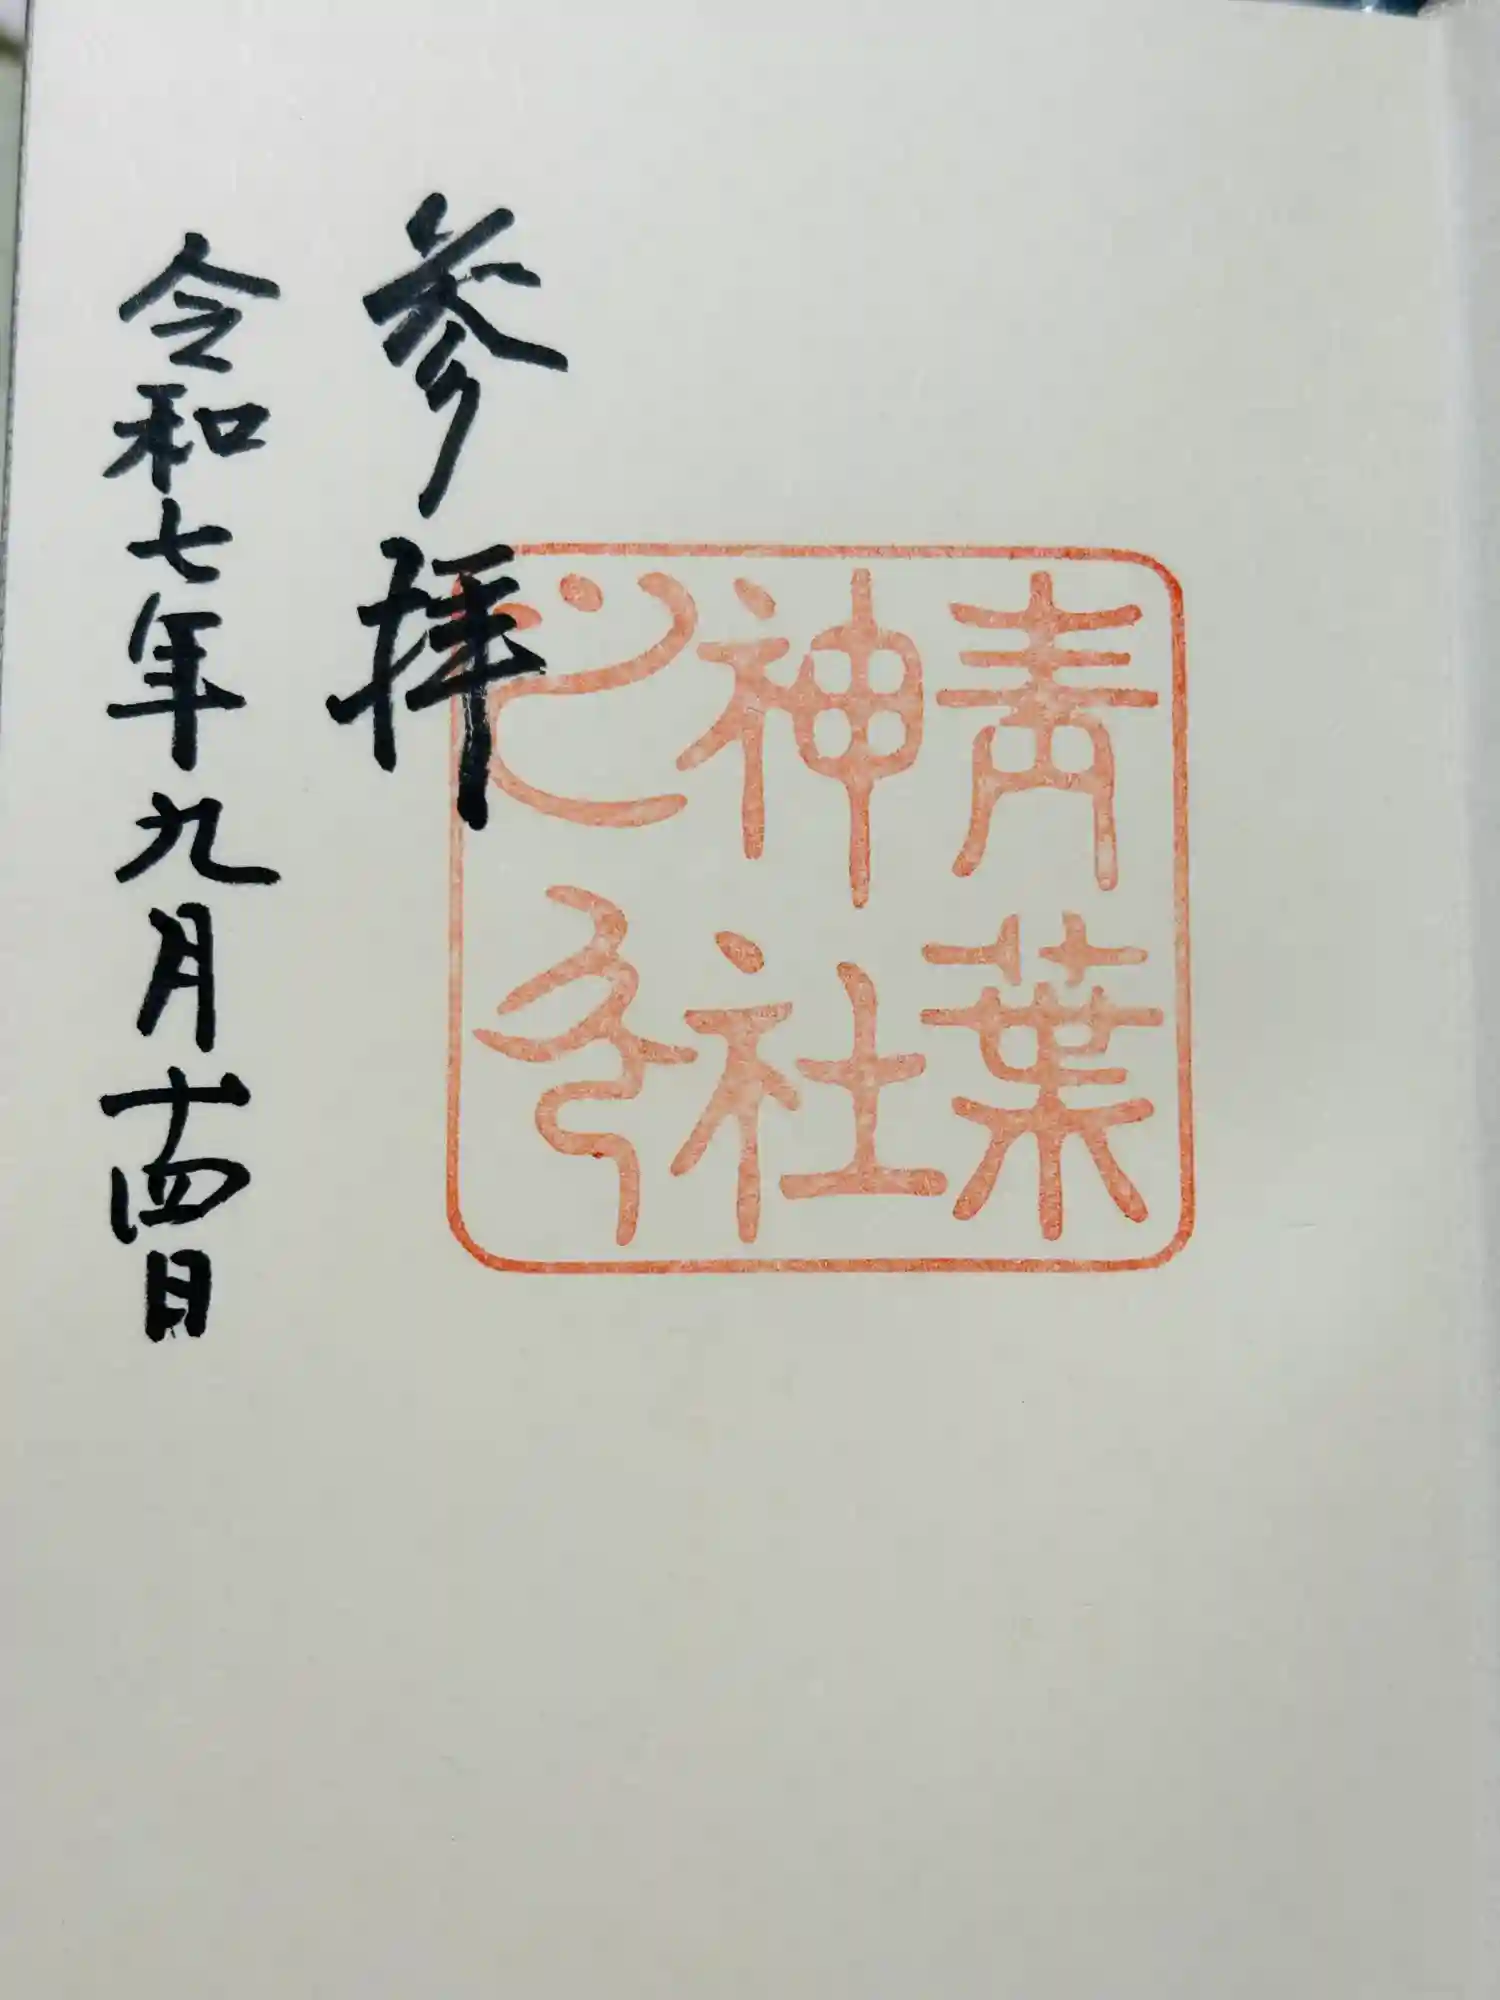 青葉
神社
参拝
令和七年九月十四日